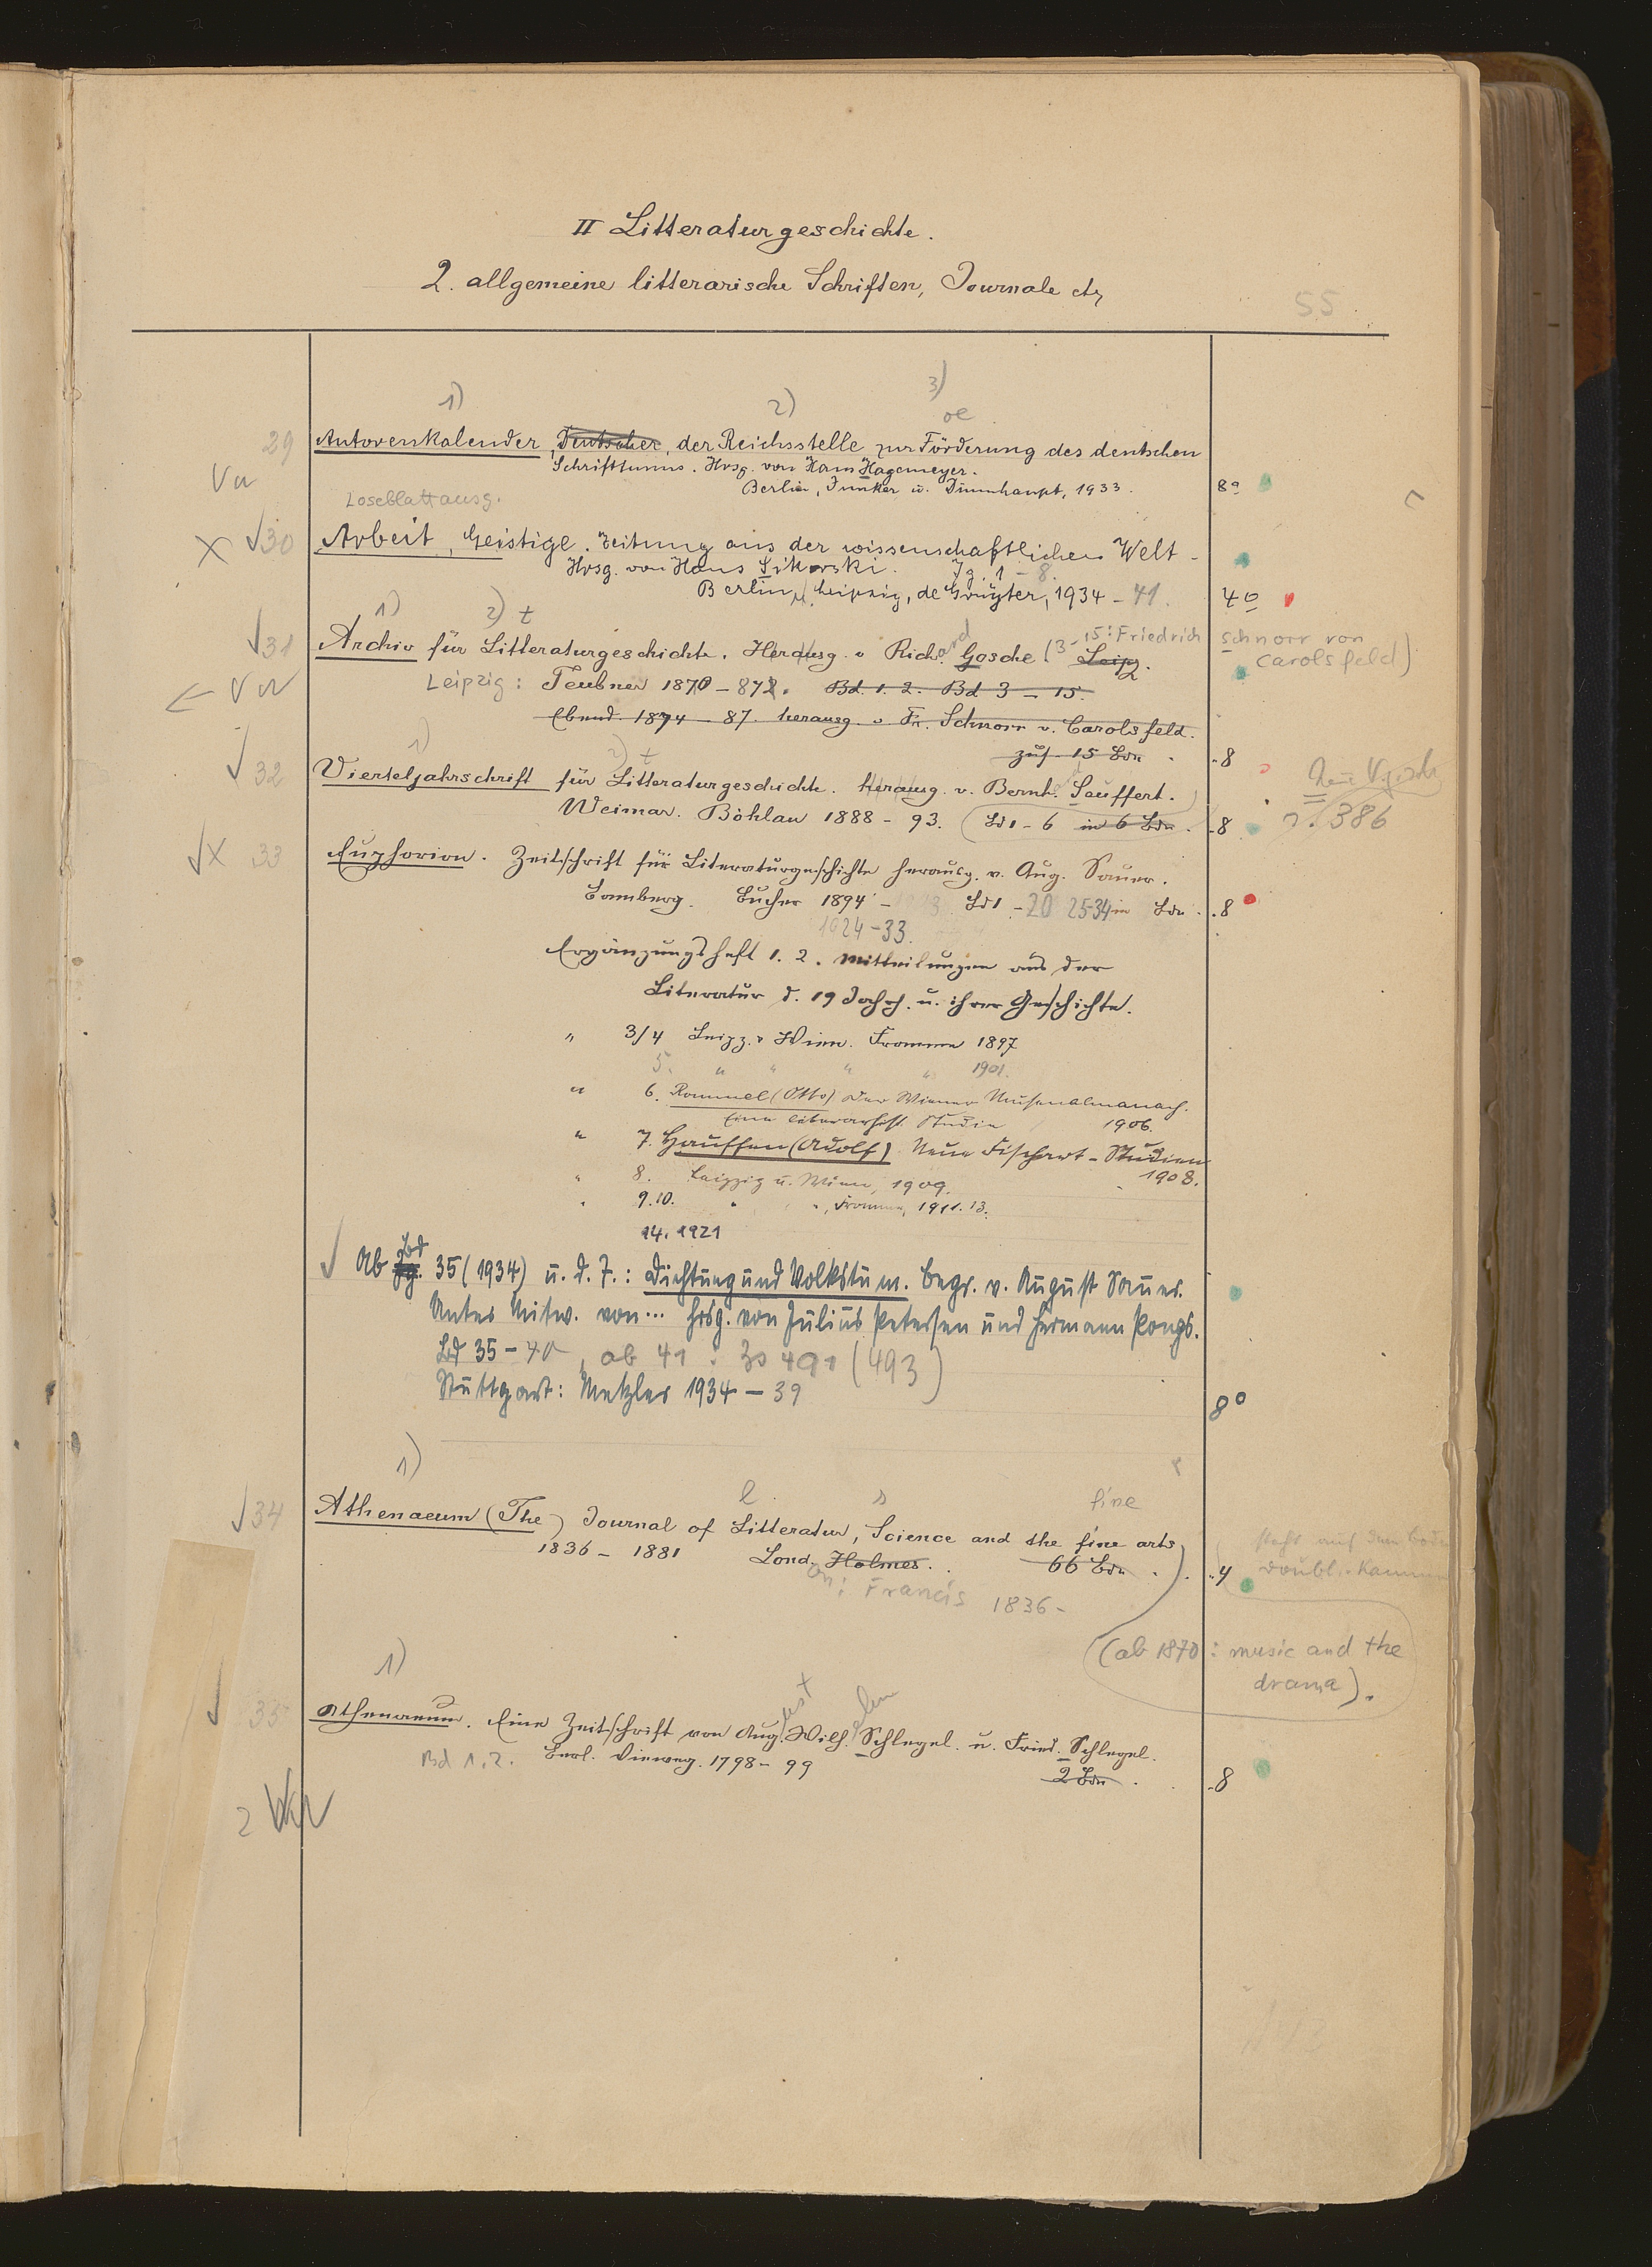 II Litteraturgeschichte.
2. allgemeine litterarische Schriften, Journale etc
55
1) 2) 3)
oe
29 Autorenkalender, Deutscher, der Reichsstelle zur Förderung des deutschen
Schrifttums. Hrsg. von Hans Hagemeyer.
Berlin, Junker u. Dünnhaupt, 1933. 8º
Loseblattausg.
X √30 Arbeit, Geistige. Zeitung aus der wissenschaftlichen Welt.
Hrsg. von Hans Sikorski. Jg. 1 - 8.
Berlin u. Leipzig, de Gruyter, 1934 - 41. 4º
1) 2) t
√31 Archiv für Litteraturgeschichte. Herausg. v Richard Gosche (3-15: Friedrich Schnorr von
Carolsfeld)
Leipz.
Leipzig: Teubner 1870 - 872. Bd. 1. 2. Bd 3 - 15.
Ebend. 1874 - 87. herausg. v Fr. Schnorr v. Carolsfeld.
zus. 15 Bdn . 8
1) 2) t
√ 32 Vierteljahrschrift für Litteraturgeschichte. Herausg. v. Bernh. Seuffert.
Weimar. Böhlau 1888 - 93. (Bd 1 - 6 in 6 Bdn. 8
386
√X 33 Euphorion. Zeitschrift für Literaturgeschichte herausg. v. Aug. Sauer.
Bamberg. Buchner 1894 - 1913 Bd 1 - 20 25-34 in Bdn. 8
1924-33.
Ergänzungsheft 1. 2. Mitteilungen aus der
Literatur d. 19 Jahrh. u. ihrer Geschichte.
" 3/4 Leipz. u Wien. Fromme 1897
5. " " " " 1901.
" 6. Rommel (Otto) Der Wiener Musenalmanach.
Eine literarhist. Studie 1906.
" 7. Hauffen (Adolf) Neue Fischart-Studien
1908.
" 8. Leipzig u. Wien, 1909.
" 9.10. " ", Fromme, 1911. 13.
14. 1921
√ Ab Jg. Bd 35 (1934) u. d. T.: Dichtung und Volkstum. Begr. v. August Sauer.
Unter Mitw. von... hrsg. von Julius Petersen und Hermann Pongs.
Bd 35 - 40, ab 41: Zs 491 (493)
Stuttgart: Metzler 1934 - 39
8º
1)
l s fine
√34 Athenaeum (The) Journal of Litteratur, Science and the fine arts
1836 - 1881 Lond. Holmes. 66 Bdn . 4
on: Francis 1836 -
steht auf dem Boden
Doubl.-Kammer
(ab 1870: music and the
drama).
1)
35 Athenaeum. Eine Zeitschrift von August Wilhelm Schlegel. u. Fried. Schlegel.
Bd 1. 2. Berl. Vieweg. 1798 - 99
2 Bdn . 8